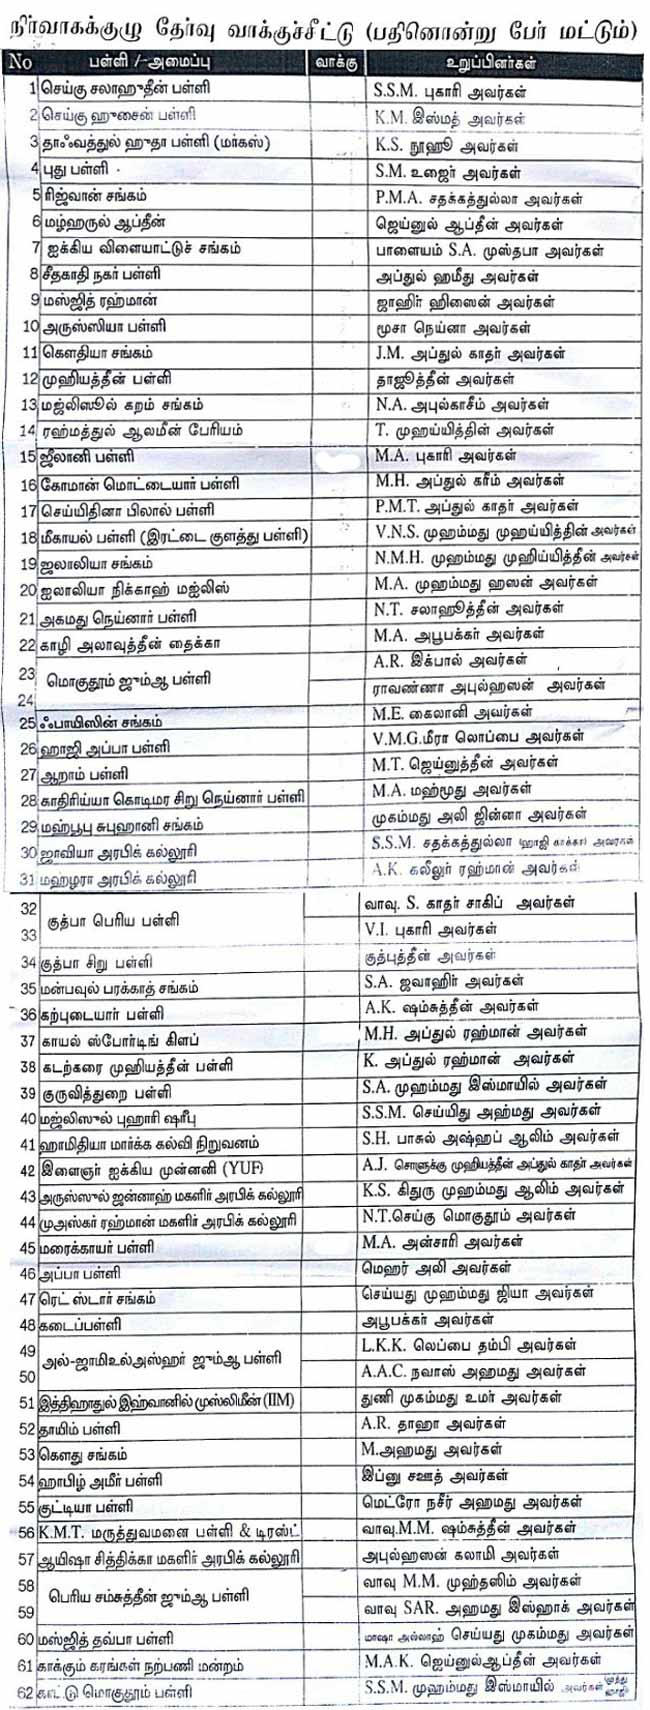 நிர்வாகக்குழு தேர்வு வாக்குச்சீட்டு (பதினொன்று பேர் மட்டும்)
No பள்ளி /-அமைப்பு வாக்கு உறுப்பினர்கள்
1 செய்கு சலாஹுதீன் பள்ளி S.S.M. புகாரி அவர்கள்
2 செய்கு ஹுசைன் பள்ளி K.M. இஸ்மத் அவர்கள்
3 தாஃவத்துல் ஹுதா பள்ளி (மர்கஸ்) K.S. நூஹூ அவர்கள்
4 புது பள்ளி S.M. உஜைர் அவர்கள்
5 ரிஜ்வான் சங்கம் P.M.A. சதக்கத்துல்லா அவர்கள்
6 மழ்ஹருல் ஆப்தீன் ஜெய்னுல் ஆப்தீன் அவர்கள்
7 ஐக்கிய விளையாட்டுச் சங்கம் பாளையம் S.A. முஸ்தபா அவர்கள்
8 சீதகாதி நகர் பள்ளி அப்துல் ஹமீது அவர்கள்
9 மஸ்ஜித் ரஹ்மான் ஜாஹிர் ஹிஸைன் அவர்கள்
10 அருஸ்ஸியா பள்ளி மூசா நெய்னா அவர்கள்
11 கௌதியா சங்கம் J.M. அப்துல் காதர் அவர்கள்
12 முஹியத்தீன் பள்ளி தாஜூத்தீன் அவர்கள்
13 மஜ்லிஸூல் கறம் சங்கம் N.A. அபுல்காசீம் அவர்கள்
14 ரஹ்மத்துல் ஆலமீன் பேரியம் T. முஹய்யித்தின் அவர்கள்
15 ஜீலானி பள்ளி M.A. புகாரி அவர்கள்
16 கோமான் மொட்டையார் பள்ளி M.H. அப்துல் கரீம் அவர்கள்
17 செய்யிதினா பிலால் பள்ளி P.M.T. அப்துல் காதர் அவர்கள்
18 மீகாயல் பள்ளி (இரட்டை குளத்து பள்ளி) V.N.S. முஹம்மது முஹய்யித்தின் அவர்கள்
19 ஜலாலியா சங்கம் N.M.H. முஹம்மது முஹிய்யித்தீன் அவர்கள்
20 ஜலாலியா நிக்காஹ் மஜ்லிஸ் M.A. முஹம்மது ஹஸன் அவர்கள்
21 அகமது நெய்னார் பள்ளி N.T. சலாஹூத்தீன் அவர்கள்
22 காழி அலாவுத்தீன் தைக்கா M.A. அபூபக்கர் அவர்கள்
23 மொகுதூம் ஜும்ஆ பள்ளி A.R. இக்பால் அவர்கள்
24 ராவண்ணா அபுல்ஹஸன் அவர்கள்
25 ஃபாயிஸின் சங்கம் M.E. கைலானி அவர்கள்
26 ஹாஜி அப்பா பள்ளி V.M.G.மீரா லெப்பை அவர்கள்
27 ஆறாம் பள்ளி M.T. ஜெய்னுத்தீன் அவர்கள்
28 காதிரிய்யா கொடிமர சிறு நெய்னார் பள்ளி M.A. மஹ்மூது அவர்கள்
29 மஹ்பூபு சுபுஹானி சங்கம் முகம்மது அலி ஜின்னா அவர்கள்
30 ஜாவியா அரபிக் கல்லூரி S.S.M. சதக்கத்துல்லா (ஹாஜி காக்கா) அவர்கள்
31 மஹ்ழரா அரபிக் கல்லூரி A.K. கலீலுர் ரஹ்மான் அவர்கள்
32 குத்பா பெரிய பள்ளி வாவு. S. காதர் சாகிப் அவர்கள்
33 V.I. புகாரி அவர்கள்
34 குத்பா சிறு பள்ளி குத்புத்தீன் அவர்கள்
35 மன்பவுல் பரக்காத் சங்கம் S.A. ஜவாஹிர் அவர்கள்
36 கற்புடையார் பள்ளி A.K. ஷம்சுத்தீன் அவர்கள்
37 காயல் ஸ்போர்டிங் கிளப் M.H. அப்துல் ரஹ்மான் அவர்கள்
38 கடற்கரை முஹியத்தீன் பள்ளி K. அப்துல் ரஹ்மான் அவர்கள்
39 குருவித்துறை பள்ளி S.A. முஹம்மது இஸ்மாயில் அவர்கள்
40 மஜ்லிஸுல் புஹாரி ஷரீபு S.S.M. செய்யிது அஹ்மது அவர்கள்
41 ஹாமிதியா மார்க்க கல்வி நிறுவனம் S.H. பாசுல் அஷ்ஹப் ஆலிம் அவர்கள்
42 இளைஞர் ஐக்கிய முன்னனி (YUF) A.J. சொளுக்கு முஹியத்தீன் அப்துல் காதர் அவர்கள்
43 அருஸ்ஸுல் ஜன்னாஹ் மகளிர் அரபிக் கல்லூரி K.S. கிதுரு முஹம்மது ஆலிம் அவர்கள்
44 முஅஸ்கர் ரஹ்மான் மகளிர் அரபிக் கல்லூரி N.T.செய்கு மொகுதூம் அவர்கள்
45 மரைக்காயர் பள்ளி M.A. அன்சாரி அவர்கள்
46 அப்பா பள்ளி மெஹர் அலி அவர்கள்
47 ரெட் ஸ்டார் சங்கம் செய்யது முஹம்மது ஜியா அவர்கள்
48 கடைப்பள்ளி அபூபக்கர் அவர்கள்
49 அல்-ஜாமிஉல்அஸ்ஹர் ஜும்ஆ பள்ளி L.K.K. லெப்பை தம்பி அவர்கள்
50 A.A.C. நவாஸ் அஹமது அவர்கள்
51 இத்திஹாதுல் இஹ்வானில் முஸ்லிமீன் (IIM) துணி முகம்மது உமர் அவர்கள்
52 தாயிம் பள்ளி A.R. தாஹா அவர்கள்
53 கௌது சங்கம் M.அஹமது அவர்கள்
54 ஹாபிழ் அமீர் பள்ளி இப்னு சஊத் அவர்கள்
55 குட்டியா பள்ளி மெட்ரோ நசீர் அஹமது அவர்கள்
56 K.M.T. மருத்துவமனை பள்ளி & டிரஸ்ட் வாவு.M.M. ஷம்சுத்தீன் அவர்கள்
57 ஆயிஷா சித்திக்கா மகளிர் அரபிக் கல்லூரி அபுல்ஹஸன் கலாமி அவர்கள்
58 பெரிய சம்சுத்தீன் ஜும்ஆ பள்ளி வாவு M.M. முஹ்தஸிம் அவர்கள்
59 வாவு SAR. அஹமது இஸ்ஹாக் அவர்கள்
60 மஸ்ஜித் தவ்பா பள்ளி மாஷா அல்லாஹ் செய்யது முகம்மது அவர்கள்
61 காக்கும் கரங்கள் நற்பணி மன்றம் M.A.K. ஜெய்னுல்ஆப்தீன் அவர்கள்
62 காட்டு மொகுதூம் பள்ளி S.S.M. முஹம்மது இஸ்மாயில் அவர்கள் (முத்து ஹாஜி)